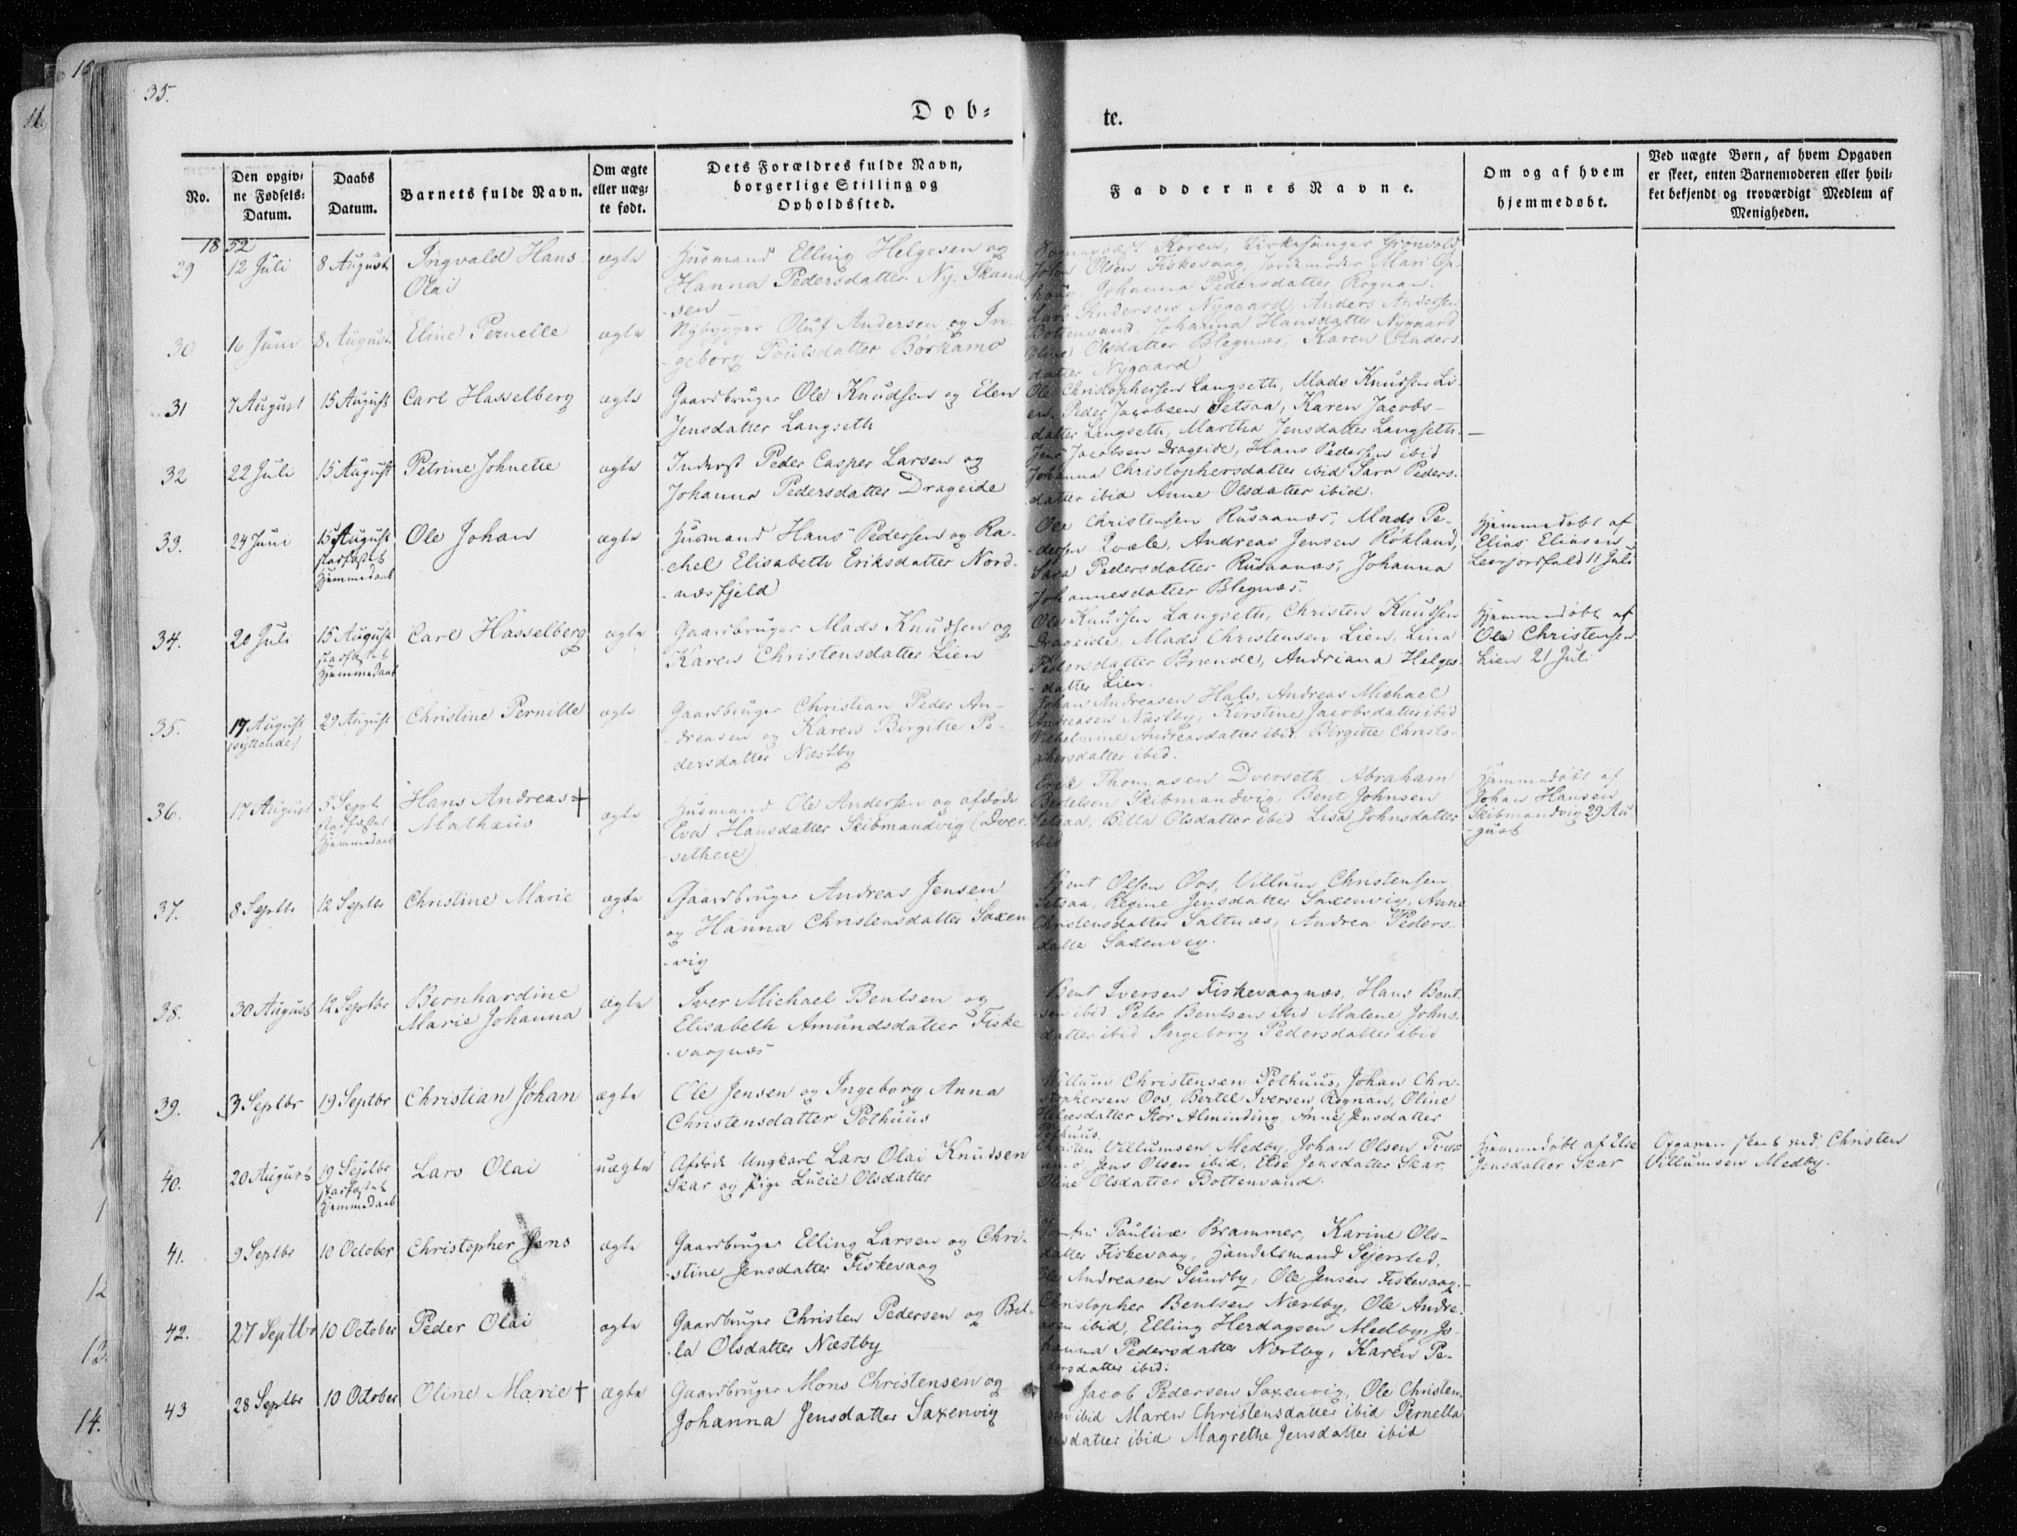 35.
Dob=
te.
No.
Den opgiv=
ne Fødsels=
Datum.
Daabs
Datum.
Barnets fulde Navn.
Om ægte
eller uæg=
te født.
Dets Forældres fulde Navn,
borgerlige Stilling og
Opholdssted.
Faddernes Navne.
Om og af hvem
hjemmedøbt.
Ved uægte Børn, af hvem Opgaven
er skeet, enten Barnemoderen eller hvil=
ket bekjendt og troværdigt Medlem af
Menigheden.
1852
29
12 Juli
8 August
Ingvald Hans
Olai
ægte
Huusmand Elling Helgesen og
Hanna Pedersdatter Ny. Skand
sen
Koren, Kirkesanger Grønvold
Johan Olsen Fiskevaag, Jordemoder Mari Op-
Johanna Pedersdatter Rognan.
30
16 Juni
8 August
Eline Pernelle
ægte
Nybygger Oluf Andersen og In-
geborg Poulsdatter Borkamo
Lars Andersen Nygaard, Anders Andersen
Bottenvand, Johanna Hansdatter Nygaard
Oline Olsdatter Blegnæs, Karen Anders
datter Nygaard
31
7 August
15 August
Carl Hasselberg
ægte
Gaardbruger Ole Knudsen og Elen
Jensdatter Langseth
Ole Christophersen Langseth, Mads Knudsen Li-
en, Peder Jacobsen Setsaa, Karen Jacobs-
datter Langseth, Martha Jensdatter Langseth.
32
22 Juli
15 August
Petrine Johnette
ægte
Inderst Peder Casper Larsen og
Johanna Pedersdatter Drageide
Jens Jacobsen Drageide, Hans Pedersen ibid
Johanna Christophersdatter ibid Sara Peders-
datter ibid Anne Olsdatter ibid.
33.
24 Juni
15 August
stadfæstet
Hjemmedaab
Ole Johan
ægte
Huusmand Hans Pedersen og Ra-
chel Elisabeth Eriksdatter Nord-
næsfjeld
Ole Christensen Rusaanæs, Mads Pe-
dersen Qvæle, Andreas Jensen Røkland,
Sara Pedersdatter Rusaanæs, Johanna
Johannesdatter Blegnæs.
Hjemmedøbt af
Elias Eliasen
Leerjordfald 11 Juli
34.
20 Juli
15 August
stadfæstet
Hjemmedaab
Carl Hasselberg
ægte
Gaardbruger Mads Knudsen og
Karen Christensdatter Lien
Ole Knudsen Langseth, Christen Knudsen
Drageide, Mads Christensen Lien, Lina
Pedersdatter Brænde, Andriana Helges-
datter Lien.
Hjemmedøbt af
Ole Christensen
Lien 21 Juli
35.
17 August
(syttende)
29 August
Christine Pernille
ægte
Gaardbruger Christian Peder An-
dreasen og Karen Birgitte Pe-
dersdatter Næstby
Johan Andreasen Hals, Andreas Michael
Andreasen Næstby, Kirstine Jacobsdatter ibid
Wilhelmine Andreasdatter ibid. Birgitte Christo-
phersdatter ibid.
36.
17 August
5 Sept
stadfæstet
Hjemmedaab
Hans Andreas +
Mathæus
ægte
Huusmand Ole Andersen og afdøde
Eva Hansdatter Skibmandvig (Dver-
setheie)
Erek Thomasen Dverseth, Abraham
Bertelsen Skibmandvig, Bent Johnsen
Setsaa, Billa Olsdatter ibid Lisa Johnsdatter
ibid
Hjemmedøbt af
Johan Hansen
Skibmandvig 29 Au-
gust
37.
8 Septbr
12 Septbr
Christine Marie
ægte
Gaardbruger Andreas Jensen
og Hanna Christensdatter Saxen
vig
Bent Olsen Oos, Villum Christensen
Setsaa, Regine Jensdatter Saxenvig, Anne
Christensdatter Saltnæs, Andrea Peders-
datter Saxenvig.
38.
30 August
12 Septbr
Bernhardine
Marie Johanna
ægte
Iver Michael Bentsen og
Elisabeth Amundsdatter Fiske
vaagnæs
Bent Iversen Fiskevaagnæs, Hans Bent-
sen ibid Peter Bentsen ibid Malene Johns-
datter ibid Ingeborg Pedersdatter ibid
39.
3 Septbr
19 Septbr
Christian Johan
ægte
Ole Jensen og Ingeborg Anna
Christensdatter Pothuus
Villum Christensen Pothuus, Johan Chri-
stophersen Oos, Bertel Iversen Rognan, Oline
Helgesdatter Stor Alminding, Anne Jensdatter
Pothuus.
40.
20 August
19 Septbr
stadfæstet
Hjemmedaab
Lars Olai
uægte
Afdøde Ungkarl Lars Olai Knudsen
Skar og Pige Lucie Olsdatter
Christen Villumsen Medby, Johan Olsen Trær-
amo Jens Olsen ibid, Else Jensdatter Skar,
Oline Olsdatter Bottenvand.
Hjemmedøbt af Else
Jensdatter Skar
Opgaven skeet ved Christen
Villumsen Medby.
41.
9 Septbr
10 October
Christopher Jens
ægte
Gaardbruger Elling Larsen og Chri-
stine Jensdatter Fiskevaag
Jomfru Pauline Brammer, Karine Ols-
datter Fiskevaag, Handelsmand Sejersted,
Ole Andreasen Sundby, Ole Jensen Fiskevaag.
42.
27 Septbr
10 October
Peder Olai
ægte
Gaardbruger Christen Pedersen og Bil-
la Olsdatter Næstby
Christopher Bentsen Næstby, Ole Andre-
asen ibid, Elling Herdagsen Medby, Jo-
hanna Pedersdatter Næstby, Karen Pe-
dersdatter ibid.
43
28 Septbr
10 October
Oline Marie +
ægte
Gaardbruger Mons Christensen og
Johanna Jensdatter Saxenvig
Jacob Pedersen Saxenvig, Ole Christen-
sen ibid Maren Christensdatter ibid Pernella
Jensdatter ibid Magrethe Jensdatter ibid
11.
12
13.
14.